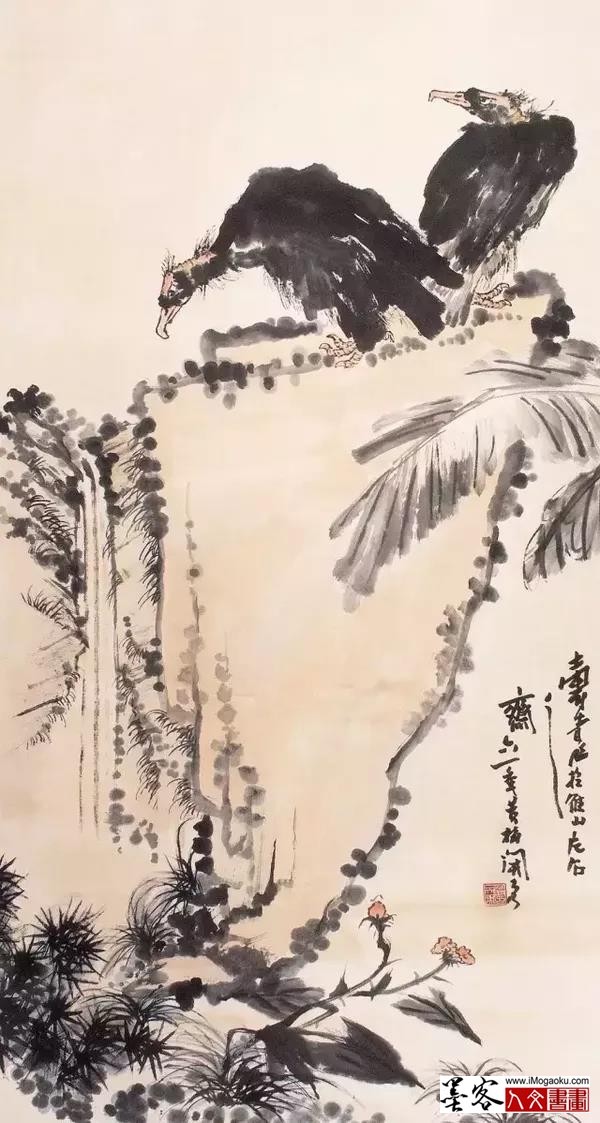 壽者於雁山左右之
齋六一年黃梅開
墨客
www.iMogaoku.com
人文書畫